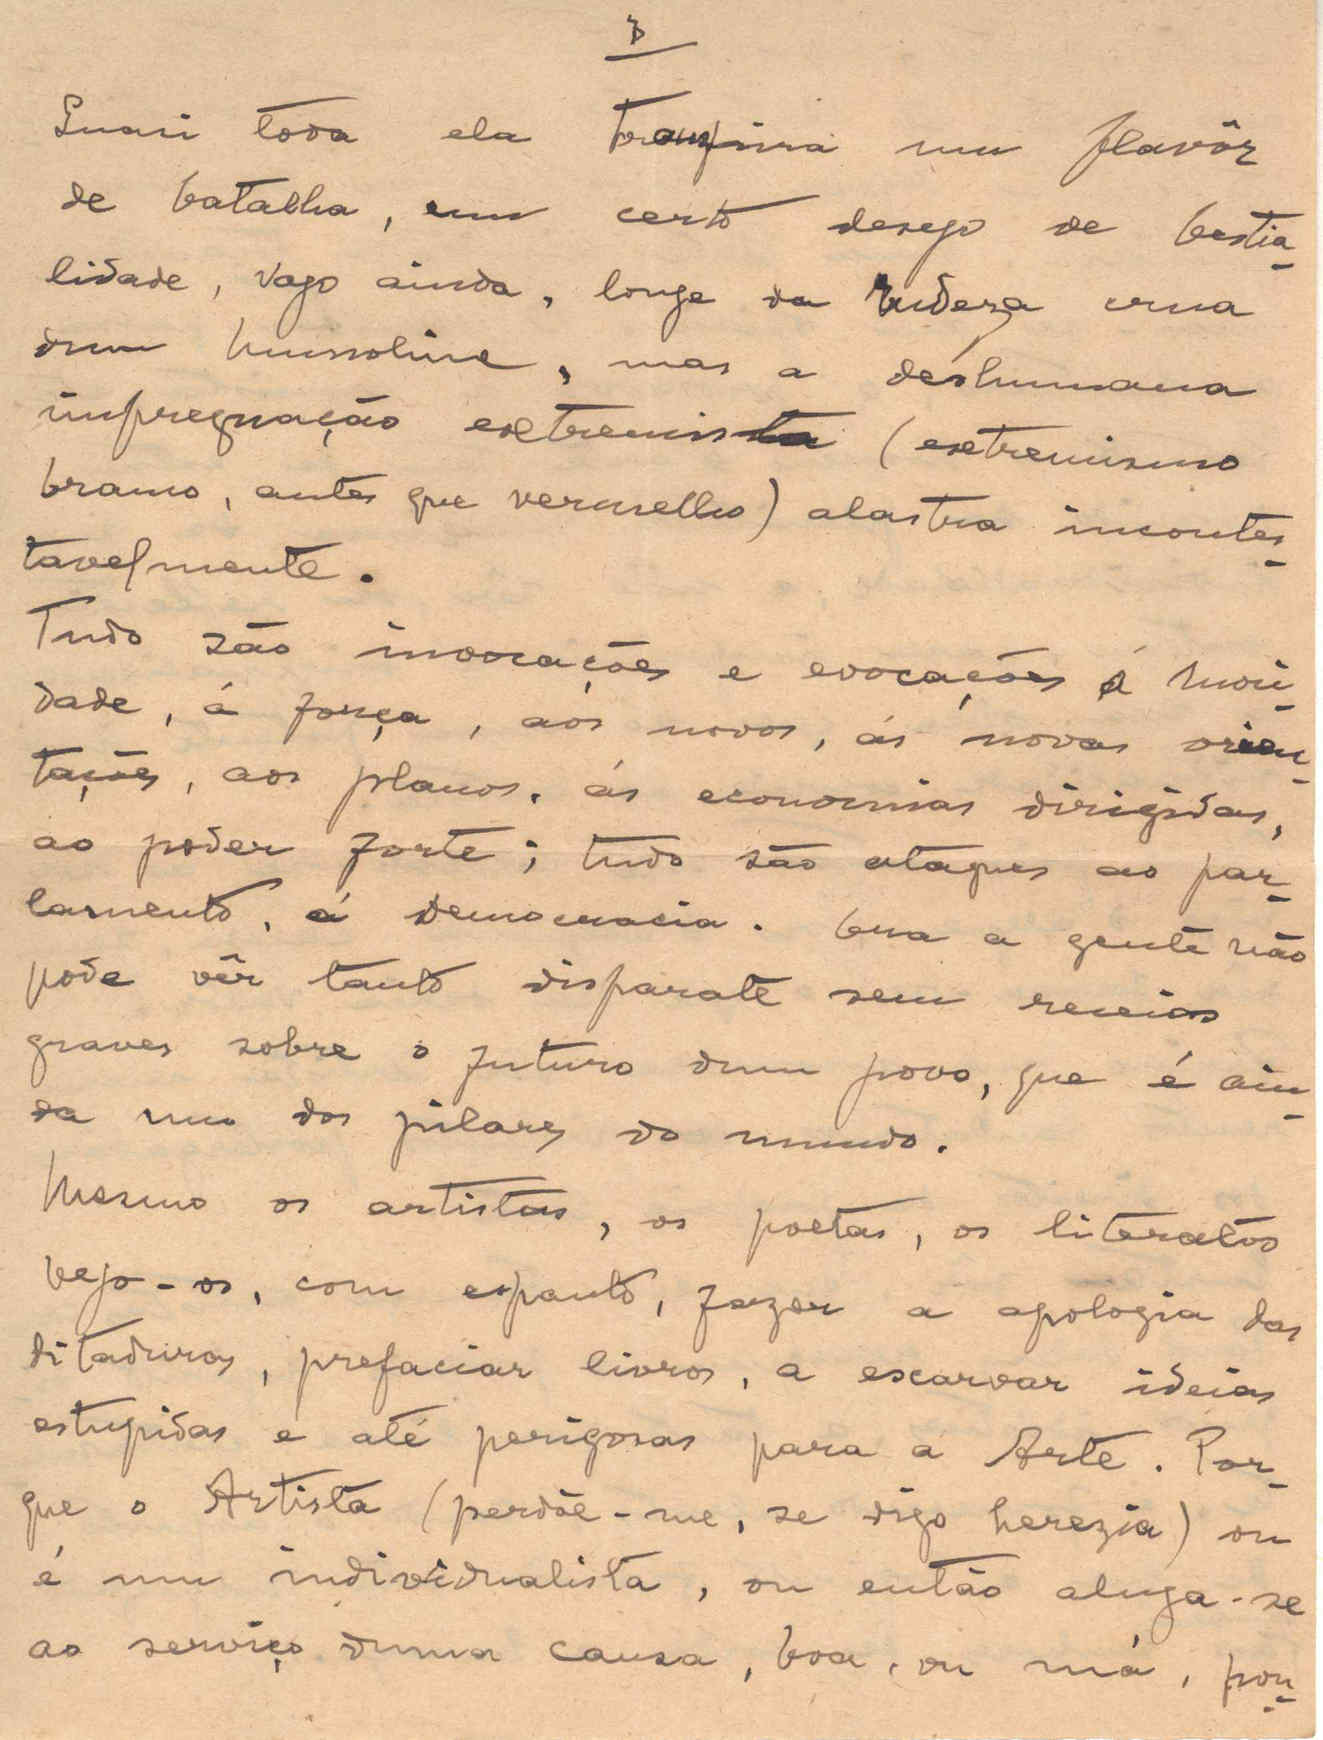 3
Quasi toda ela transpira um flavôr
de batalha, um certo desejo de bestia-
lidade, vago ainda, longe da rudeza crua
dum Mussoline, mas a deshumana
impregnação extremista (extremismo
branco, antes que vermelho) alastra incontes-
tavelmente.
Tudo são invocações e evocações á moci-
dade, á força, aos novos, ás novas orien-
tações, aos planos, ás economias dirigidas,
ao poder forte; tudo são ataques ao par-
lamento, á Democracia. Ora a gente não
pode vêr tanto disparate sem receios
graves sobre o futuro dum povo, que é ain-
da um dos pilares do mundo.
Mesmo os artistas, os poetas, os literatos
vejo-os, com espanto, fazer a apologia das
ditaduras, prefaciar livros, a escarvar ideias
estupidas e até perigosas para a Arte. Por-
que o Artista (perdôe-me, se digo herezia) ou
é um individualista, ou então aluga-se
ao serviço duma causa, boa, ou má, pou-